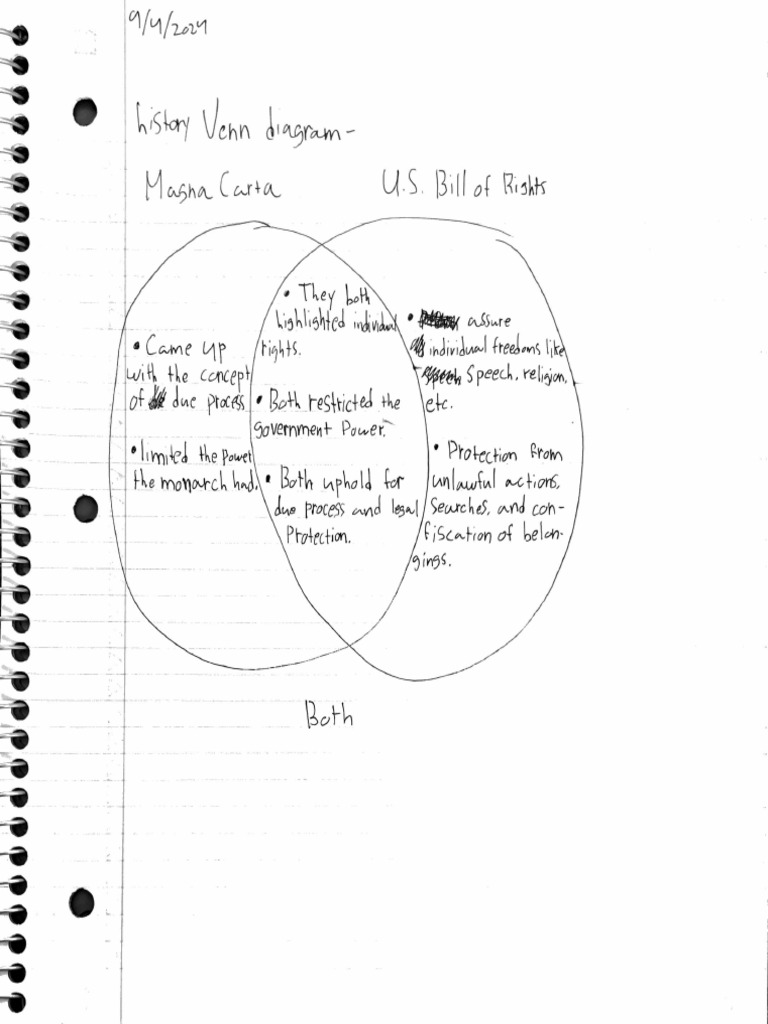 9/4/2024
history Venn diagram-
Magna Carta
U.S. Bill of Rights
• Came up
with the concept
of due process
• limited the power
the monarch had.
• They both
highlighted individual
rights.
• Both restricted the
government Power.
• Both uphold for
due process and legal
Protection.
• assure
individual freedoms like
Speech, religion,
etc.
• Protection from
unlawful actions,
searches, and con-
fiscation of belon-
gings.
Both